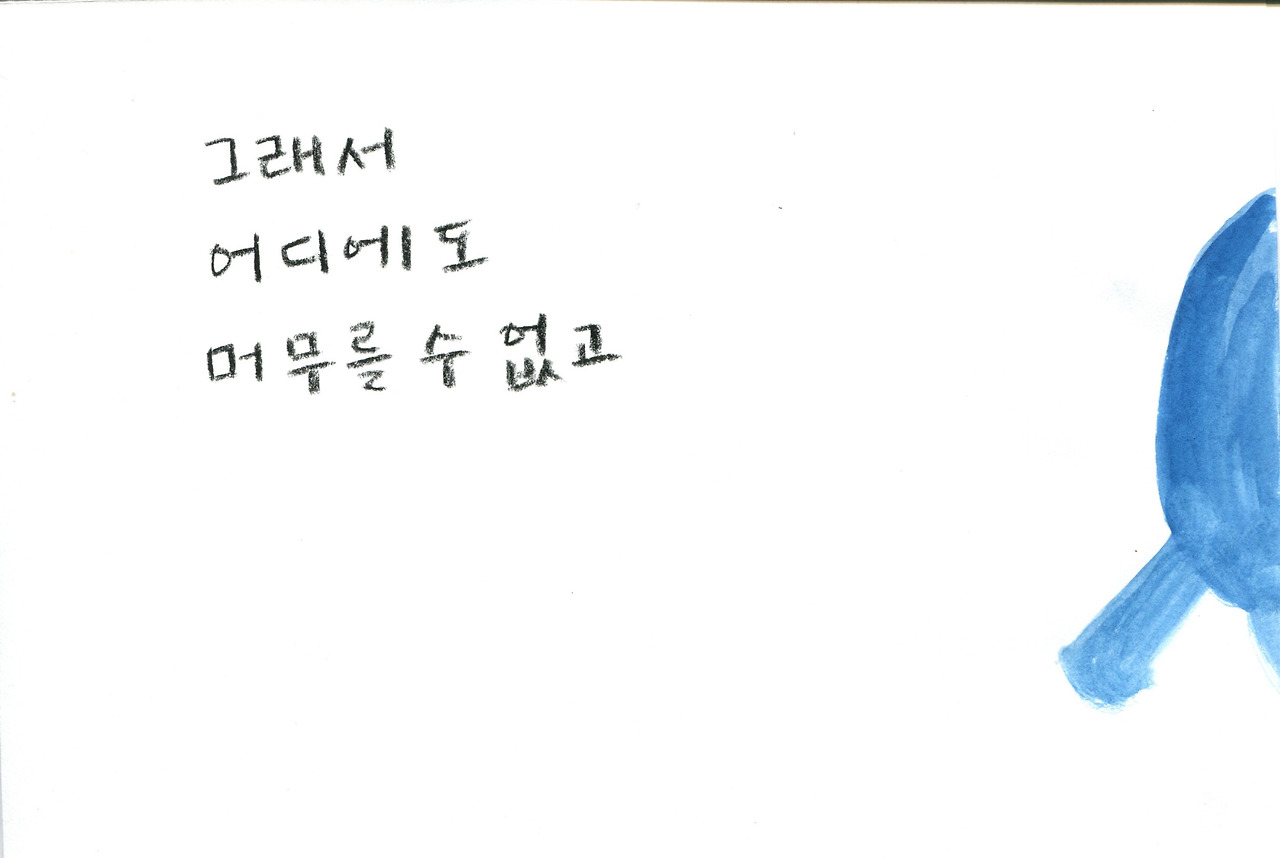 그래서
어디에도
머무를 수 없고